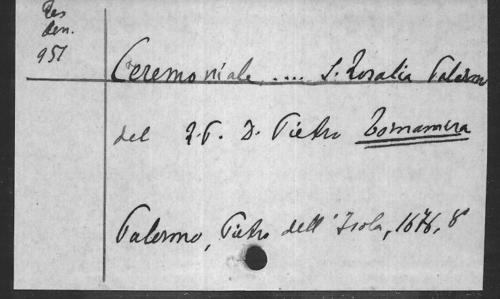 Res
den.
951
Ceremoniale .... S. Rosalia Palermo
del R. P. D. Pietro Tornamira
Palermo, Pietro dell'Isola, 1676, 8°